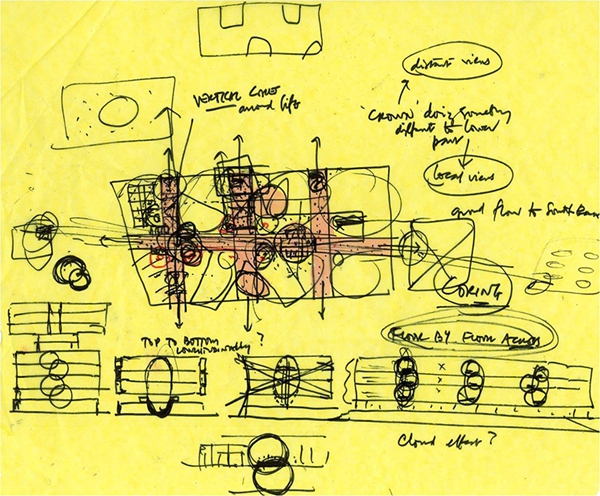 distant views
VERTICAL CORES
around lifts
'CROWN' doing geometry
different to lower
part
local views
ground flow to South Bank
CORING
FLOOR BY FLOOR ACCESS
TOP TO BOTTOM
?
Cloud effect?